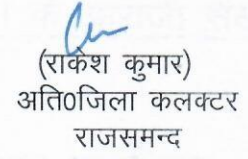 (राकेश कुमार)
अति0जिला कलक्टर
राजसमन्द